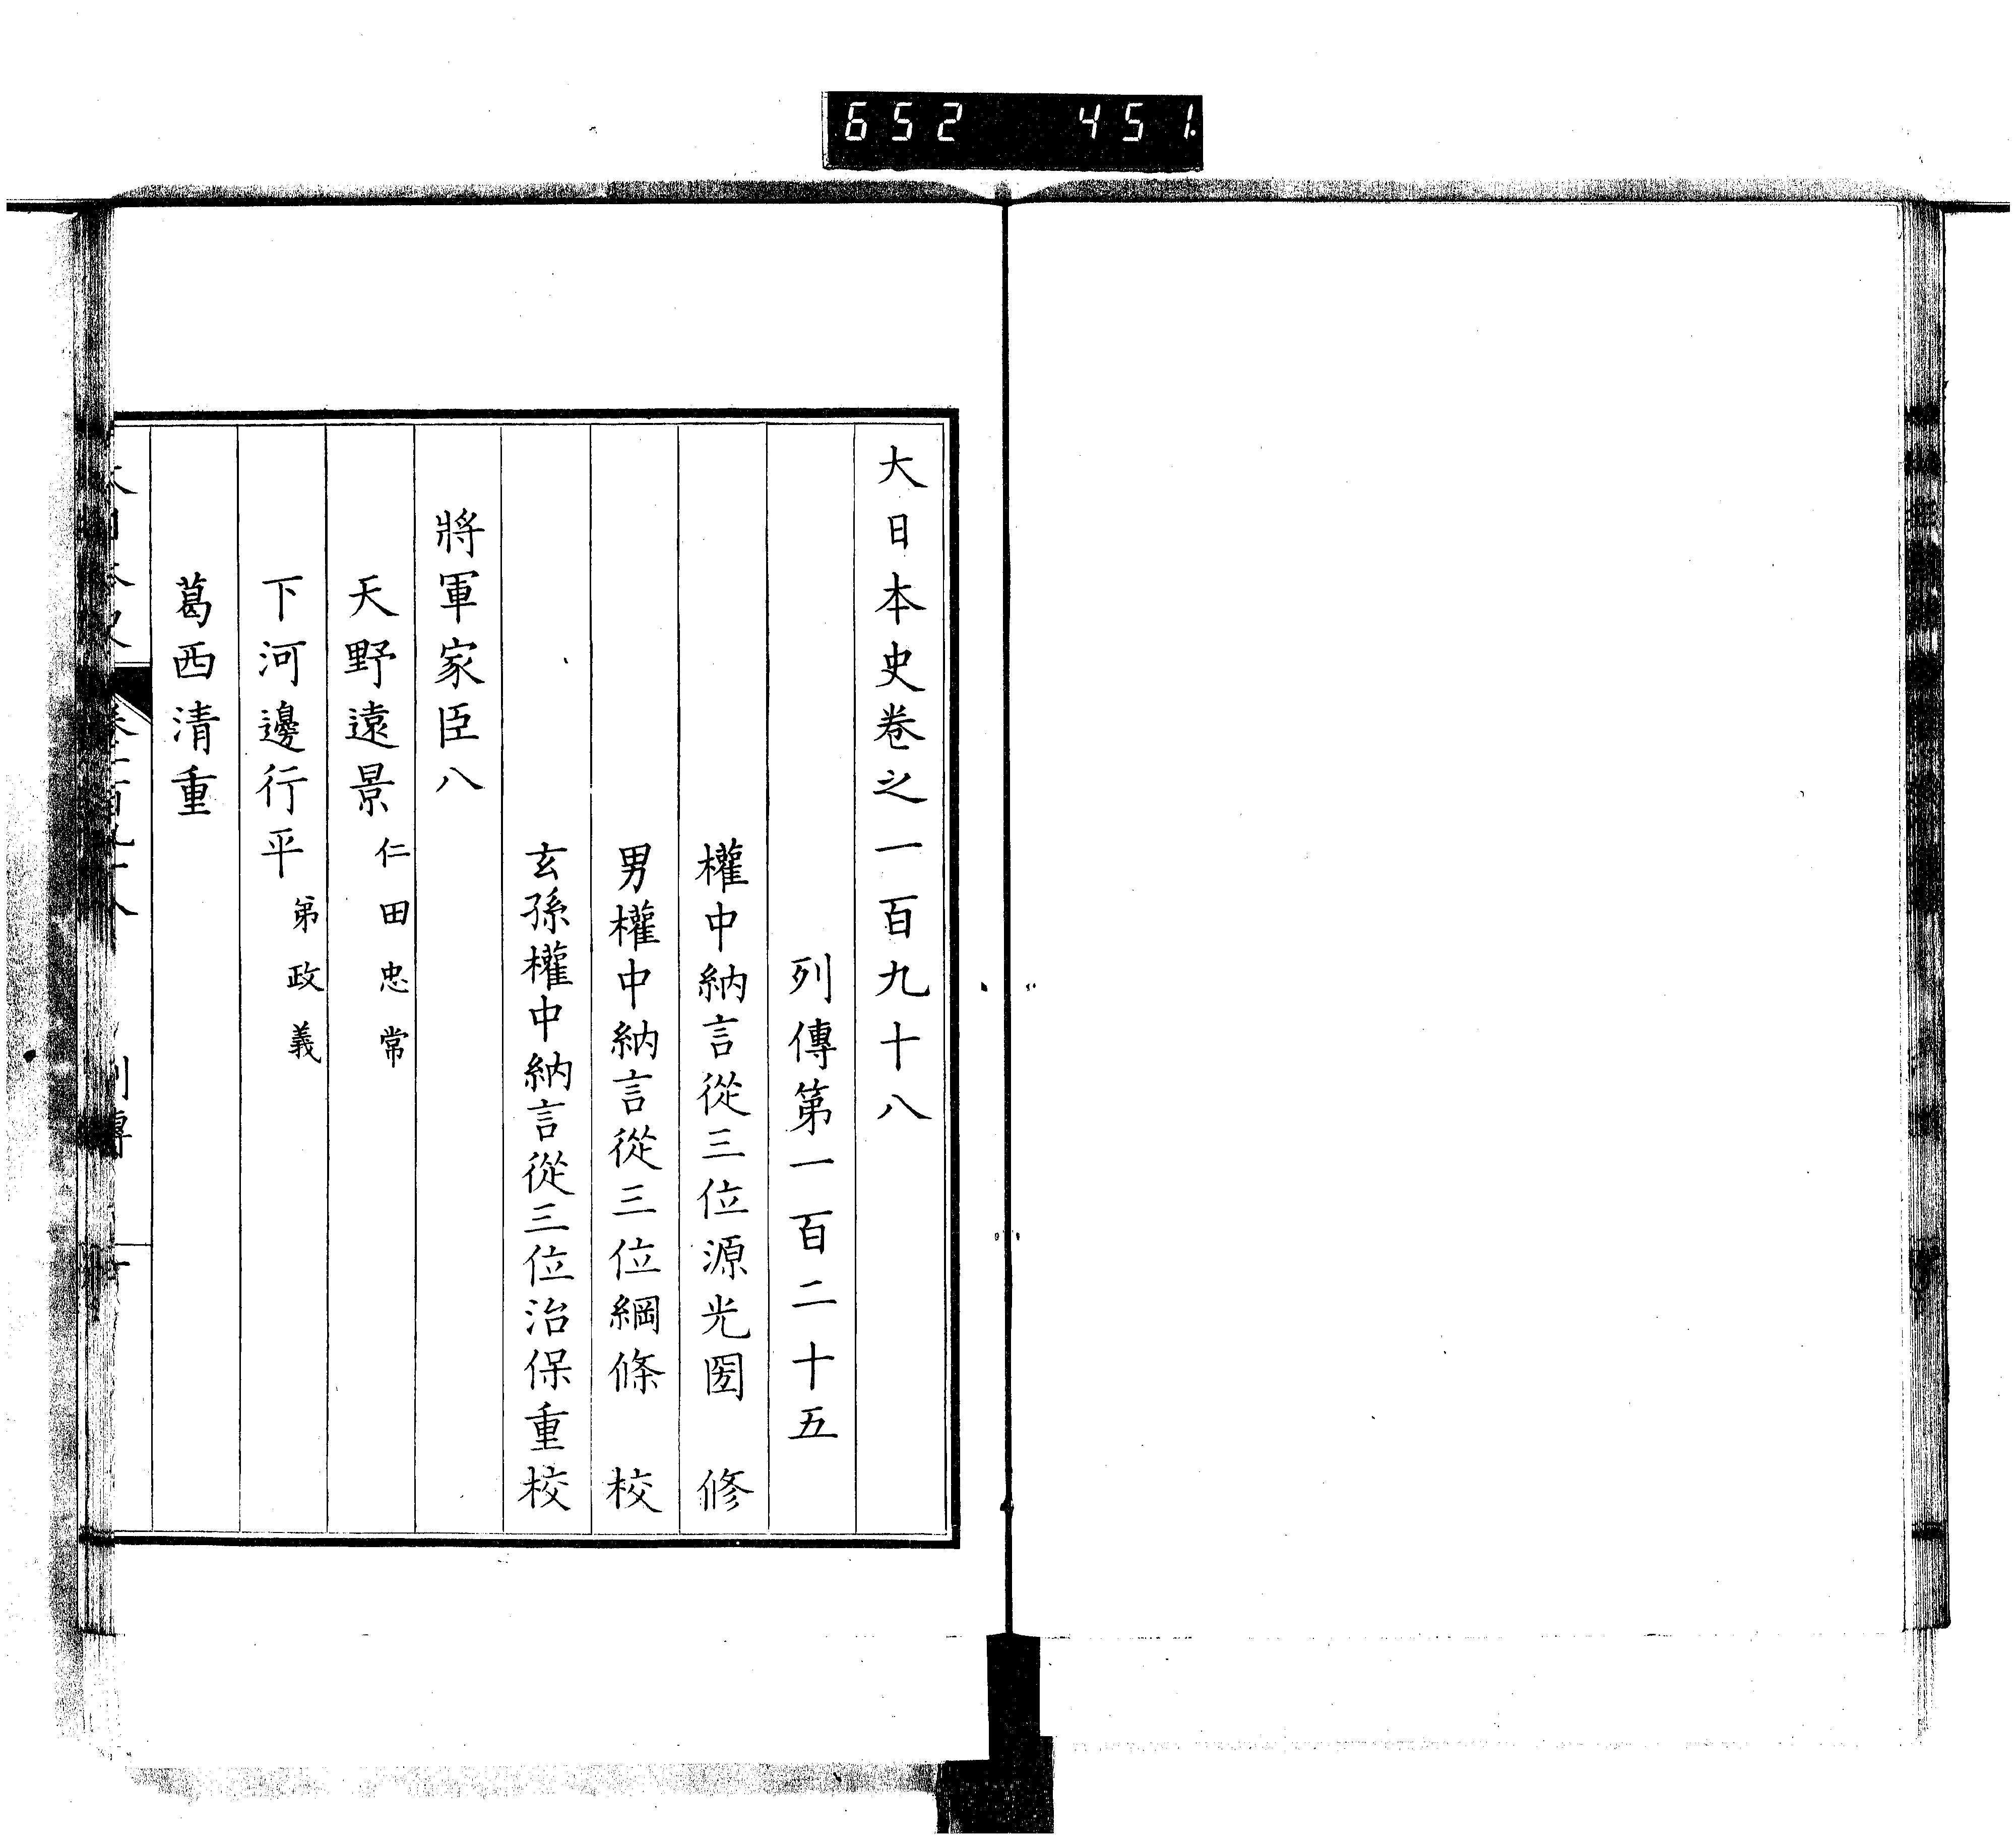 652 451
大日本史卷之一百九十八
列傳第一百二十五
權中納言從三位源光圀 修
男權中納言從三位綱條 校
玄孫權中納言從三位治保重校
將軍家臣八
天野遠景 仁田忠常
下河邊行平 弟政義
葛西清重